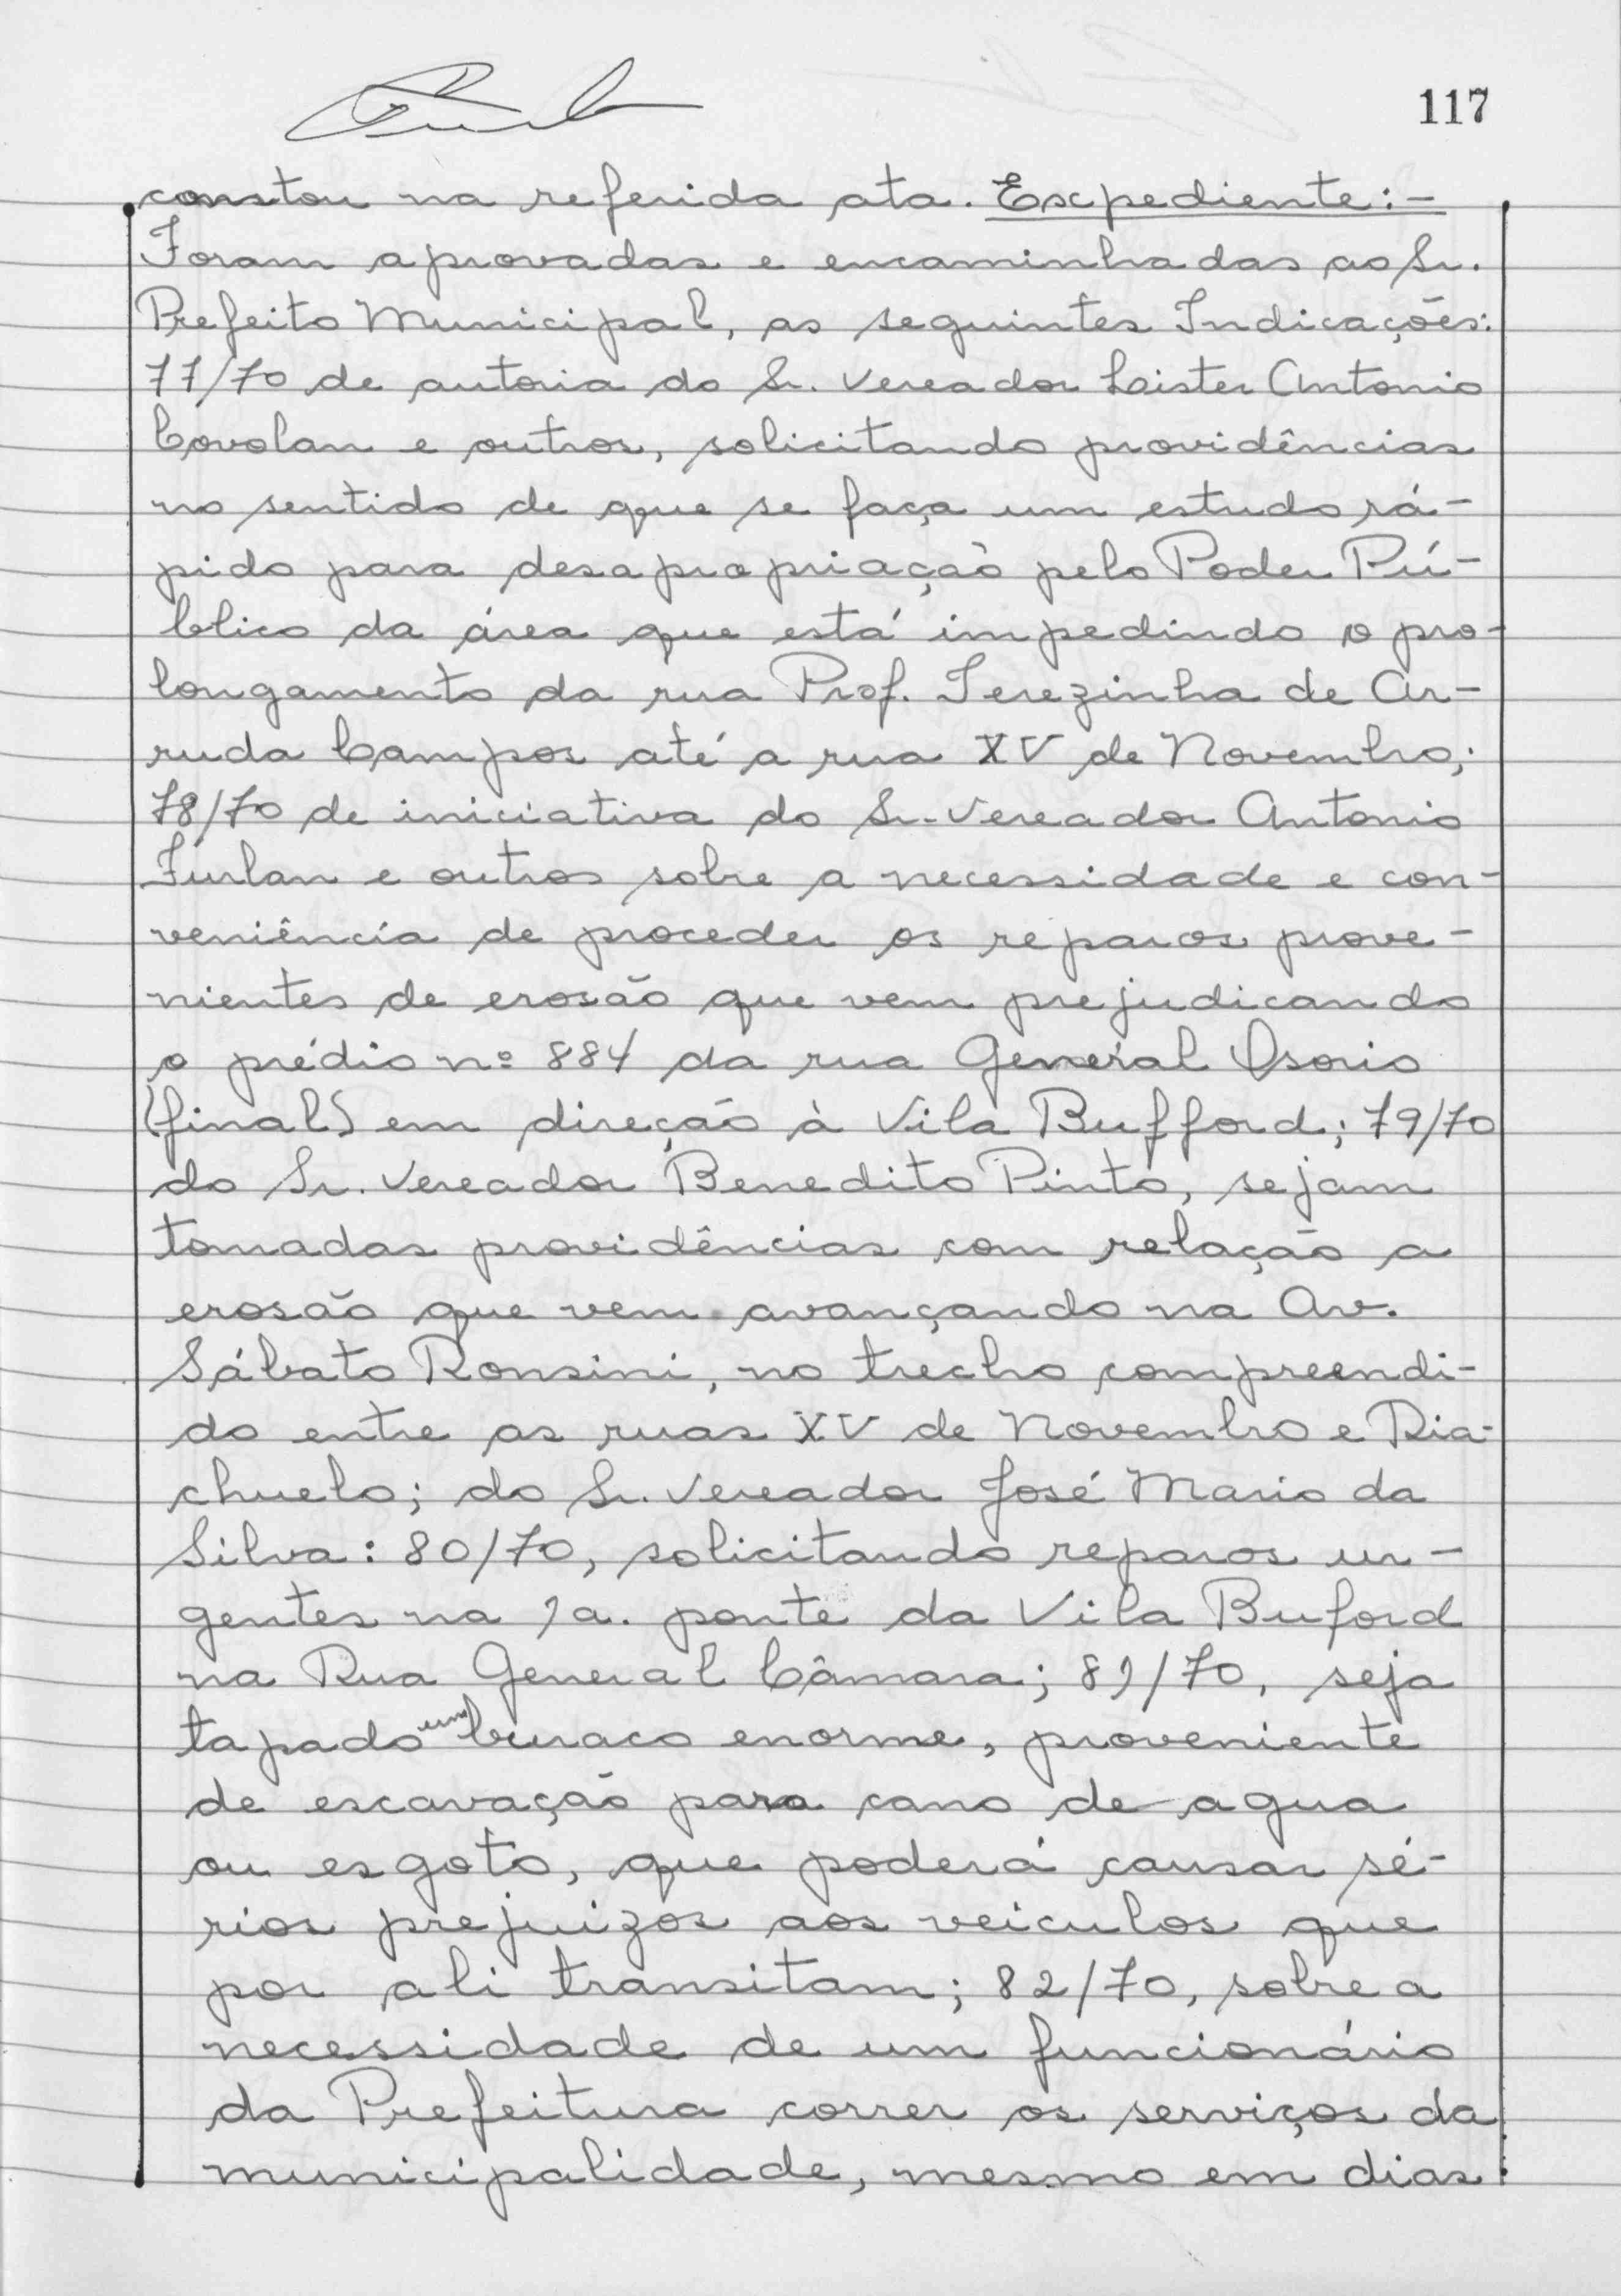 117
constou na referida ata. Expediente:-
Foram aprovadas e encaminhadas ao Sr.
Prefeito Municipal, as seguintes Indicações:
77/70 de autoria do Sr. Vereador Lister Antonio
Covolan e outros, solicitando providências
no sentido de que se faça um estudo rá-
pido para desapropriação pelo Poder Pú-
blico da área que está impedindo o pro-
longamento da rua Prof. Terezinha de Ar-
ruda Campos até a rua XV de Novembro;
78/70 de iniciativa do Sr. Vereador Antonio
Furlan e outros sobre a necessidade e con-
veniência de proceder os reparos prove-
nientes de erosão que vem prejudicando
o prédio nº 884 da rua General Osorio
(final) em direção à Vila Bufford; 79/70
do Sr. Vereador Benedito Pinto, sejam
tomadas providências com relação a
erosão que vem avançando na Av.
Sábato Ronsini, no trecho compreendi-
do entre as ruas XV de Novembro e Ria-
chuelo; do Sr. Vereador José Mario da
Silva: 80/70, solicitando reparos ur-
gentes na 1a. ponte da Vila Buford
na Rua General Câmara; 81/70, seja
tapado um buraco enorme, proveniente
de escavação para cano de agua
ou esgoto, que poderá causar sé-
rios prejuizos aos veiculos que
por ali transitam; 82/70, sobre a
necessidade de um funcionário
da Prefeitura correr os serviços da
municipalidade, mesmo em dias